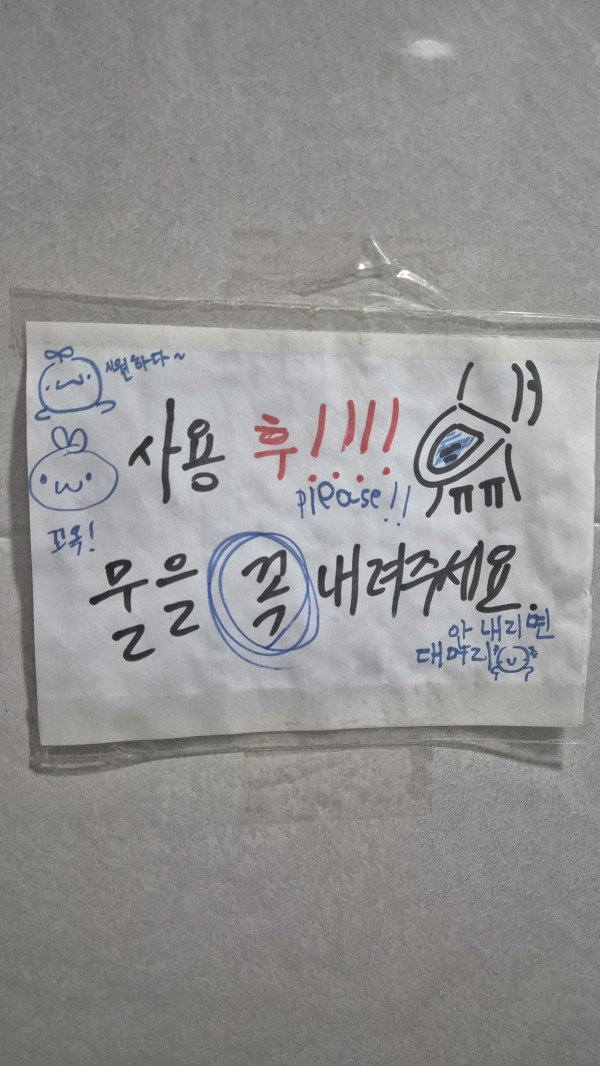 시원하다~
사용 후!!!!
piease!!
꼬옥!
물을 꼭 내려주세요.
안 내리면
대머리